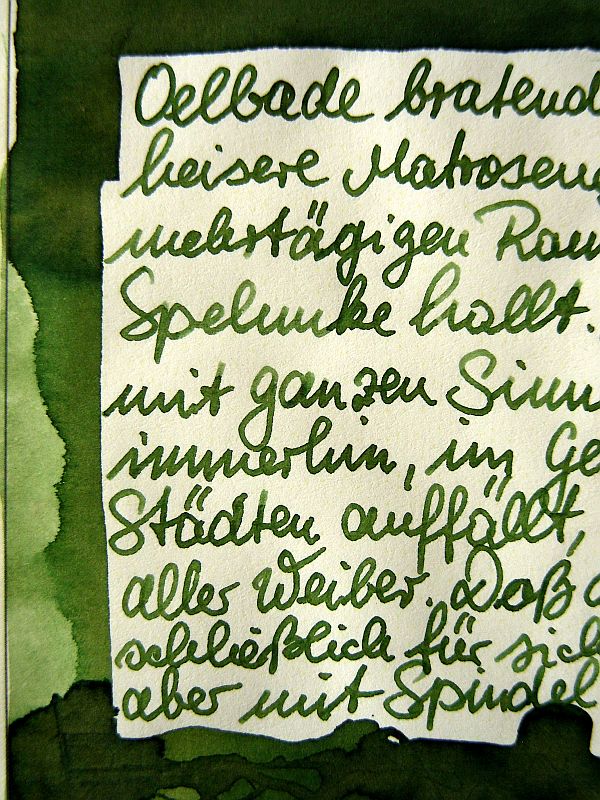 Oelbade bratend
heisere Matrosen
mehrtägigen
Spelunke hallt.
mit ganzen
immerhin, im
Städten auffällt,
aller Weiber. Daß
schließlich für sich
aber mit Spindel